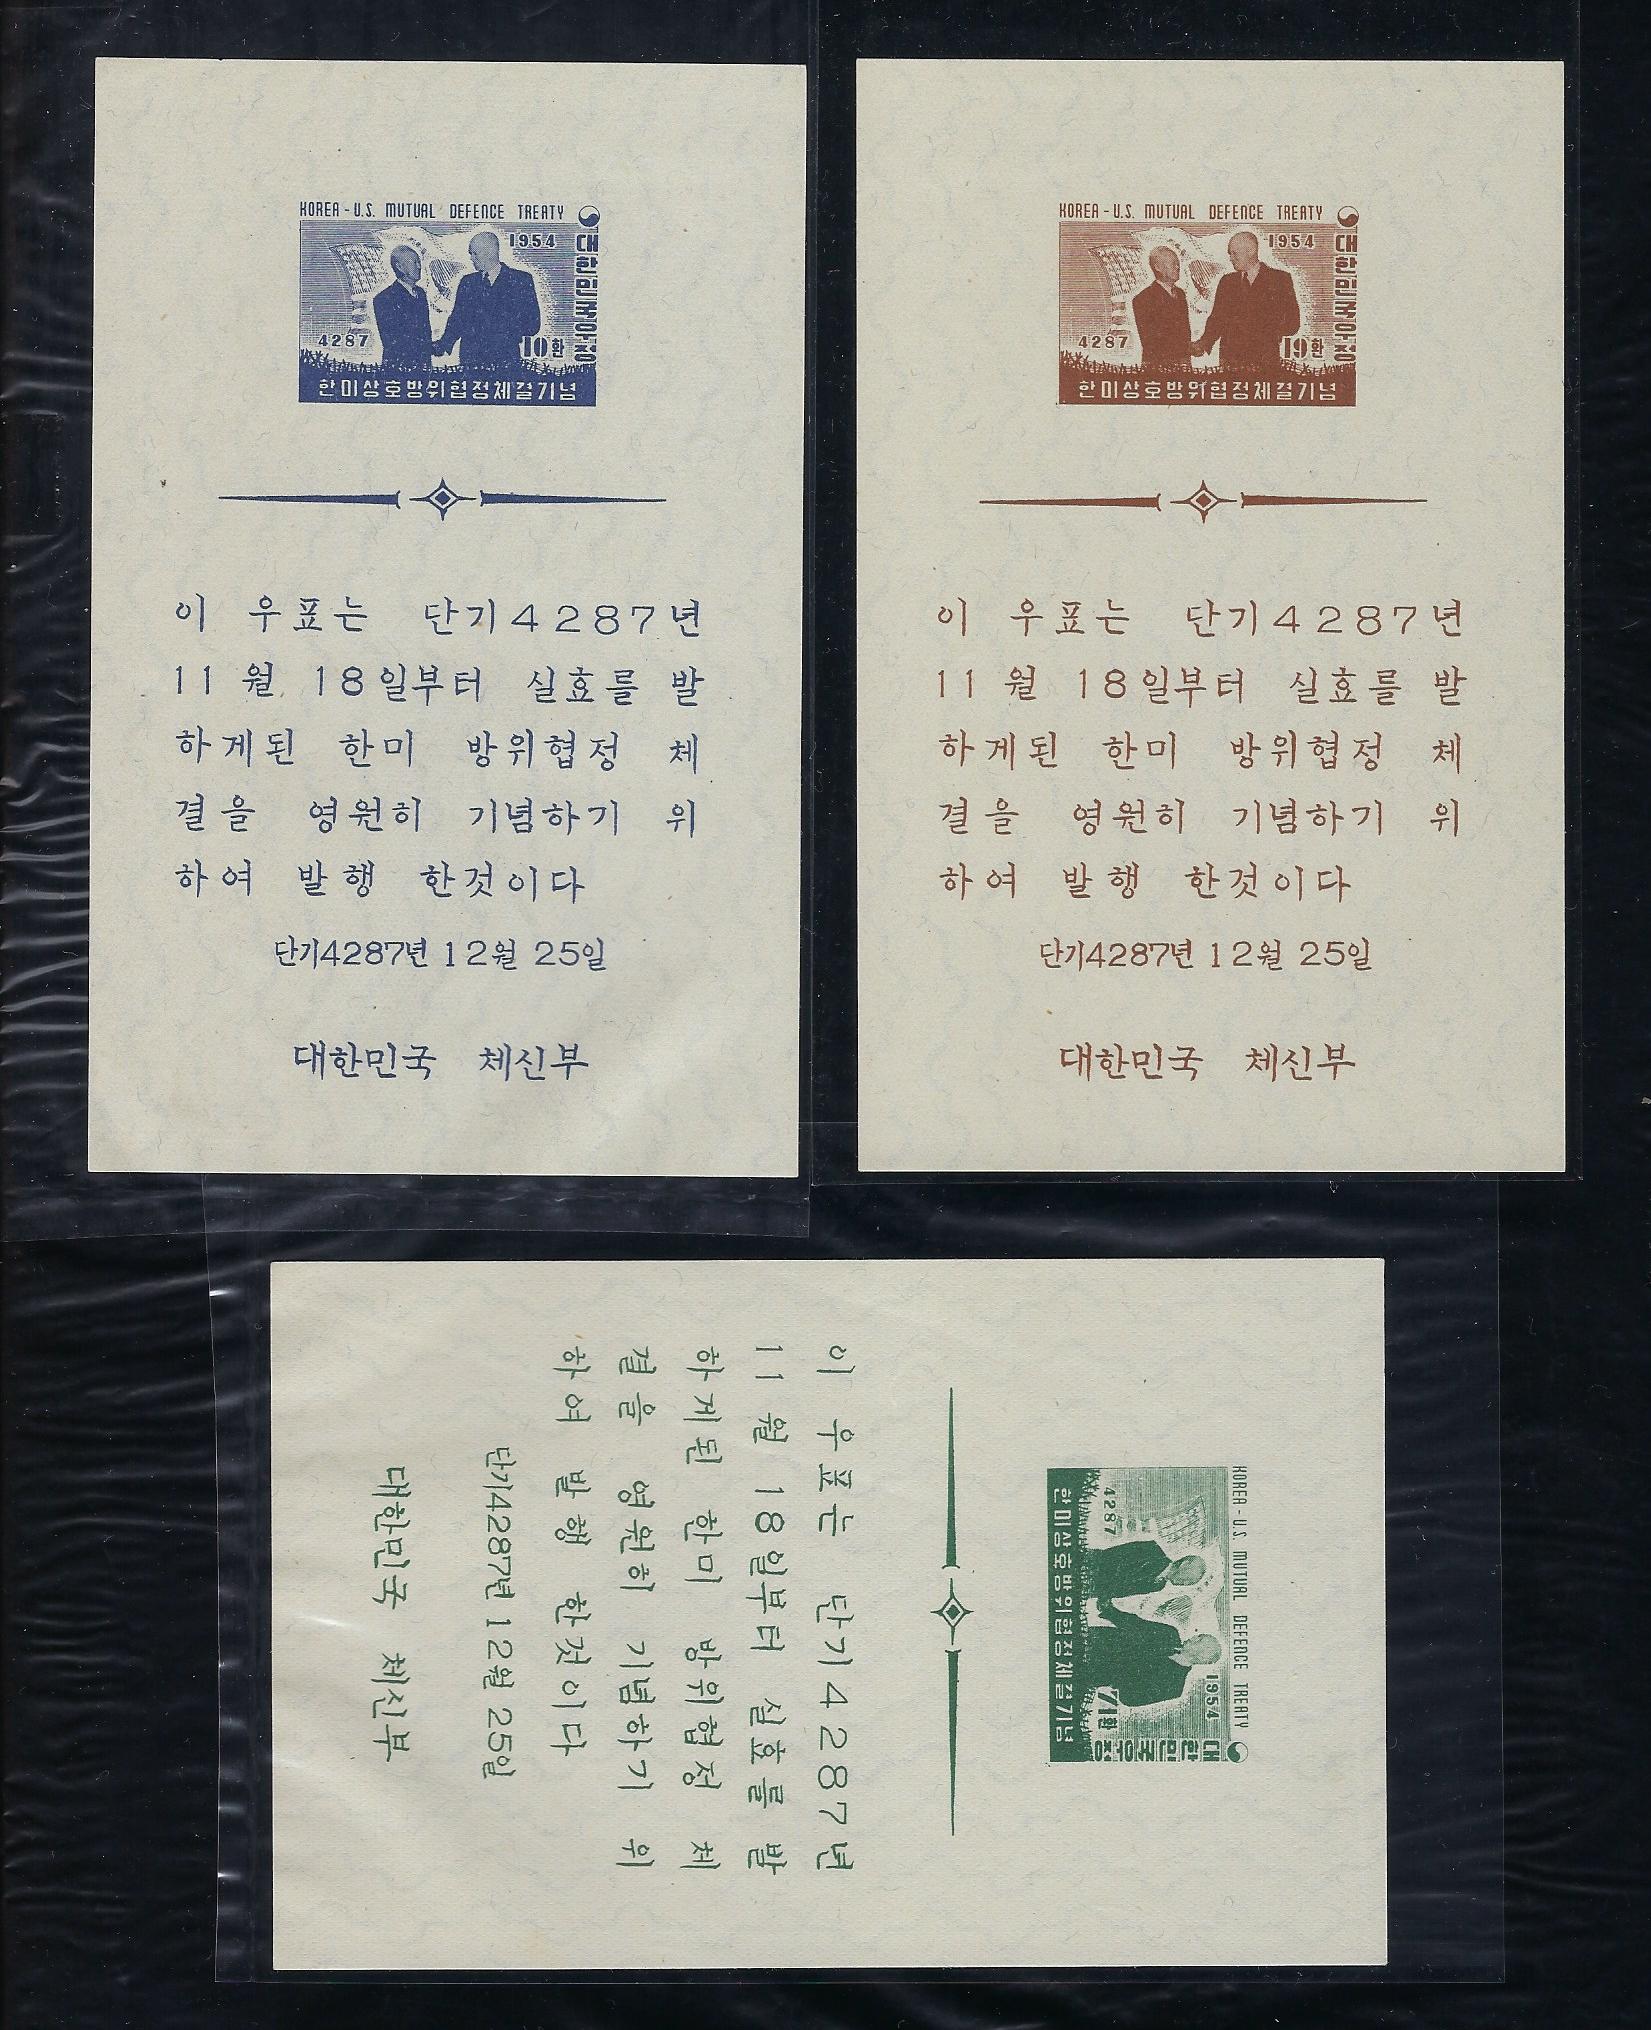 KOREA - U.S. MUTUAL DEFENCE TREATY
1954
대한민국우정
4287
10환
한미상호방위협정체결기념
이 우표는 단기4287년
11월 18일부터 실효를 발
하게된 한미 방위협정 체
결을 영원히 기념하기 위
하여 발행 한것이다
단기4287년 12월 25일
대한민국 체신부
KOREA - U.S. MUTUAL DEFENCE TREATY
1954
대한민국우정
4287
19환
한미상호방위협정체결기념
이 우표는 단기4287년
11월 18일부터 실효를 발
하게된 한미 방위협정 체
결을 영원히 기념하기 위
하여 발행 한것이다
단기4287년 12월 25일
대한민국 체신부
KOREA - U.S. MUTUAL DEFENCE TREATY
1954
대한민국우정
4287
71환
한미상호방위협정체결기념
이 우표는 단기4287년
11월 18일부터 실효를 발
하게된 한미 방위협정 체
결을 영원히 기념하기 위
하여 발행 한것이다
단기4287년 12월 25일
대한민국 체신부